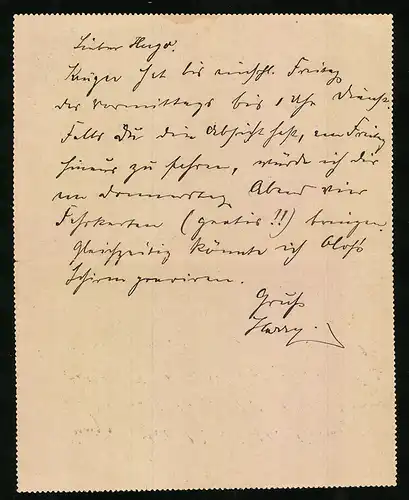 Lieber Hugo.
Krüger hat bis einschl. Freitag
des Vormittags bis 1 Uhr Dienst.
Falls Du die Absicht hast, am Freitag
hinaus zu fahren, würde ich Dir
am Donnerstag Abend vier
Fahrkarten (gratis!!) bringen.
Gleichzeitig könnte ich Olof's
Schirm
Gruß
Harry.